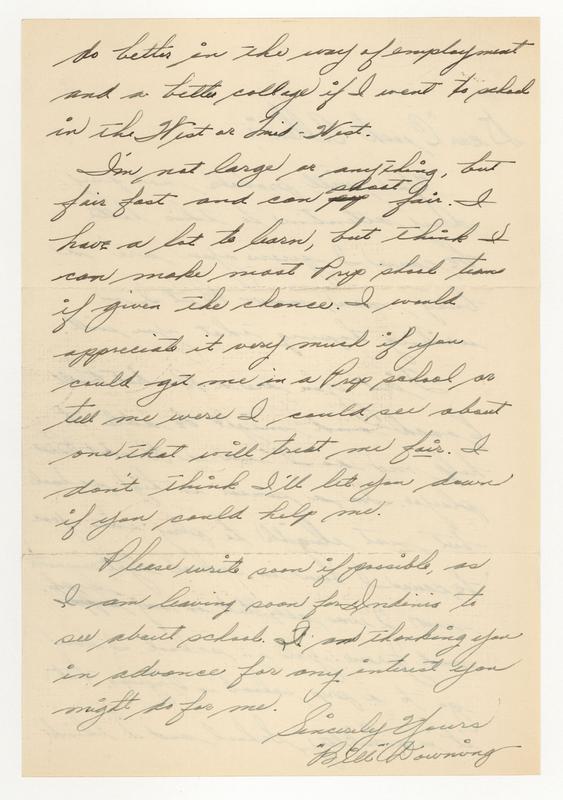 do better in the way of employment
and a better collage if I went to school
in the West or Mid-West.
I'm not large or anything, but
shoot
fair fast and can fair. I
have a lot to learn, but think I
can make most Prep shool teams
if given the chance. I would
appreciate it very much if you
could get me in a Prep school or
tell me were I could see about
one that will treat me fair. I
don't think I'll let you down
if you could help me.
Please write soon if possible, as
I am leaving soon for to
see about school. I am thanking you
in advance for any interest you
might do for me.
Sincerly Yours
"Bill" Downing